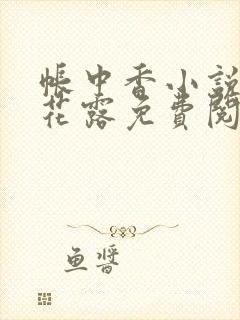 帳中香小説
花露免費閱
鱼醬